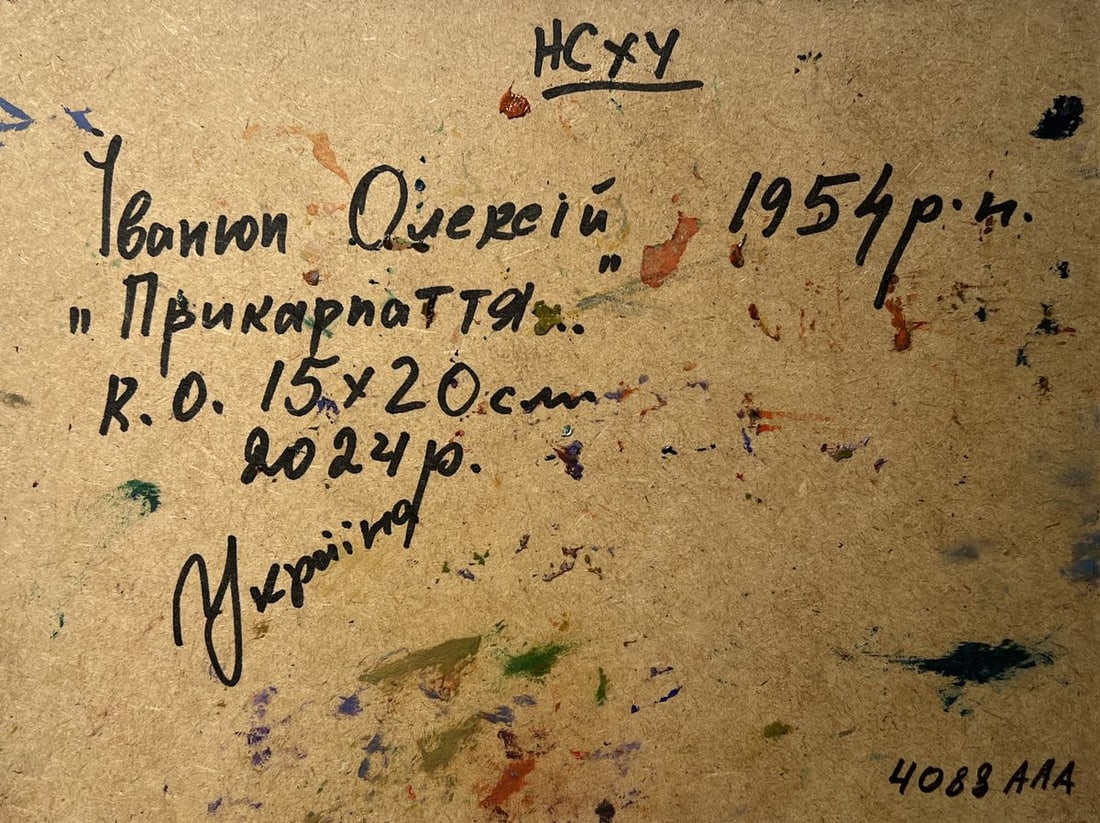 НСХУ
Іванюп Олексій 1954 р.н.
"Прикарпаття".
к.о. 15х20 см
2024 р.
Україна
4088 ААА